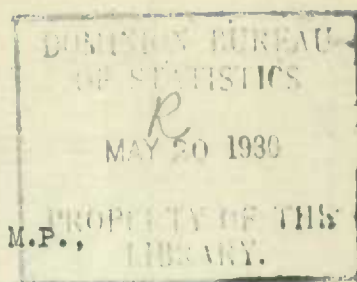 DOMINION BUREAU
OF STATISTICS
R
MAY 20 1930
PROPERTY OF THE
LIBRARY.
M.P.,